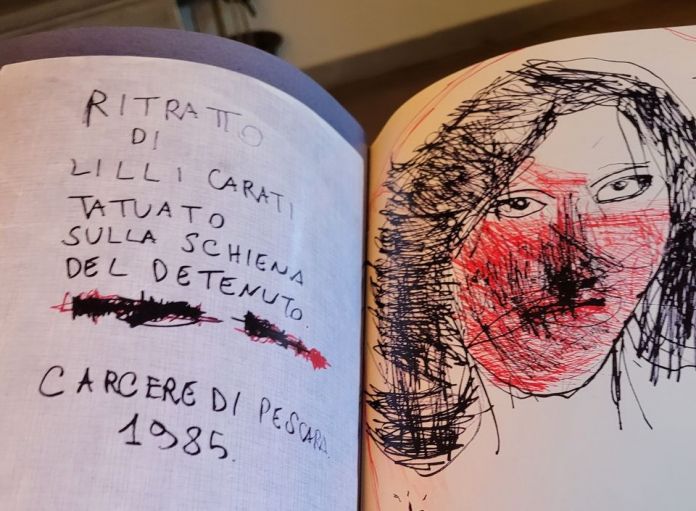 RITRATTO
DI
LILLI CARATI
TATUATO
SULLA SCHIENA
DEL DETENUTO
CARCERE DI PESCARA
1985.